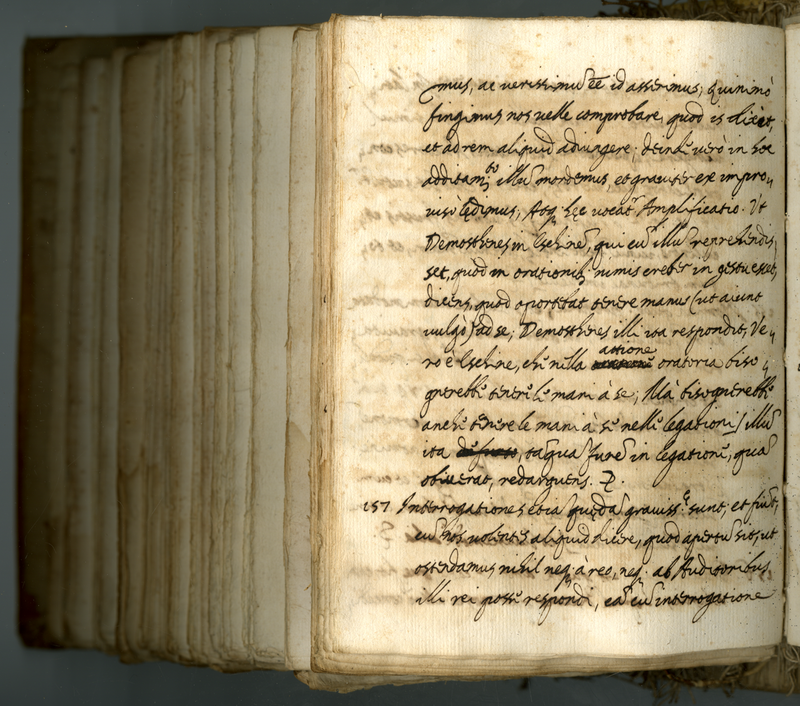 mus, ac verissimũ eẽ id asserimus; Quinimò
fingimus nos velle comprobare, quod is dicit,
et ad rem aliquid adiungere; deinde verò in hoc
additam.to illũ mordemus, et graviter ex impro,,
viso lędimus, Atq; hęc vocat.r Amplificatio. Ut
Demosthenes in Eschinẽ, qui cũ illũ reprehendis,
set, quòd in orationib; nimis creber in gestu esset,
dicens, quod oportebat tenere manus (ut aiunt
vulgò) ad se; Demosthenes illi ita respondit, Ve,,
ro è Eschine, che nella attione oratoria biso,,
gnerebbe tenere le mani à se; Mà bisognerebbe
anche tenere le mani à se nelle legationi / Illũ
ita, tãquã furẽ in legatione, quã
obiverat, redarguens.
157 Interrogationes etiã quędã graviss.e sunt; et fiũt,
cũ nos volentes aliquid dicere, quod apertũ sit, ut
ostendamus nihil neq; à reo, neq; ab Auditoribus
illi rei posse responderi, eã cũ interrogatione